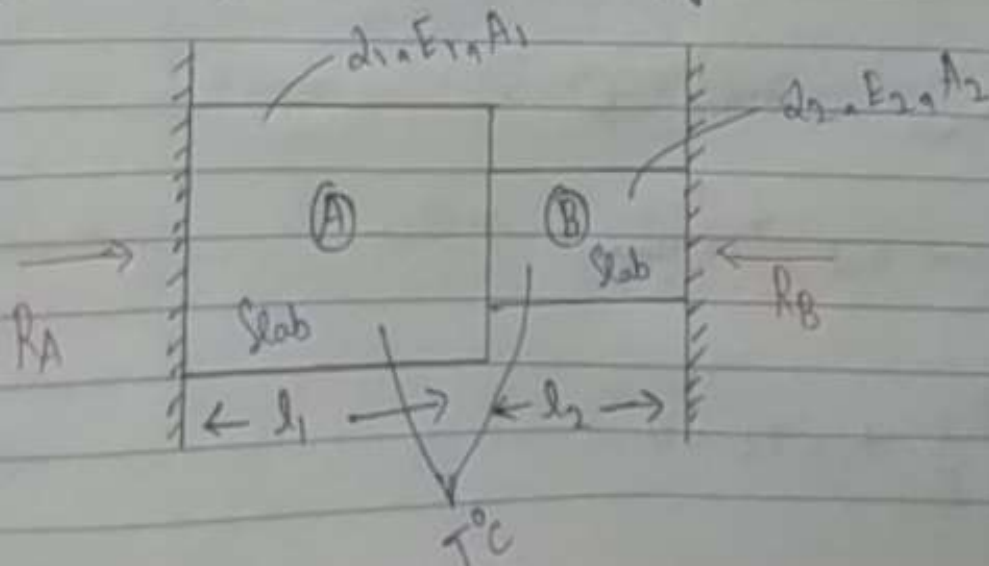 α₁, E₁, A₁
α₂, E₂, A₂
A
B
Slab
Slab
R_A
R_B
← l₁ →
← l₂ →
T°C